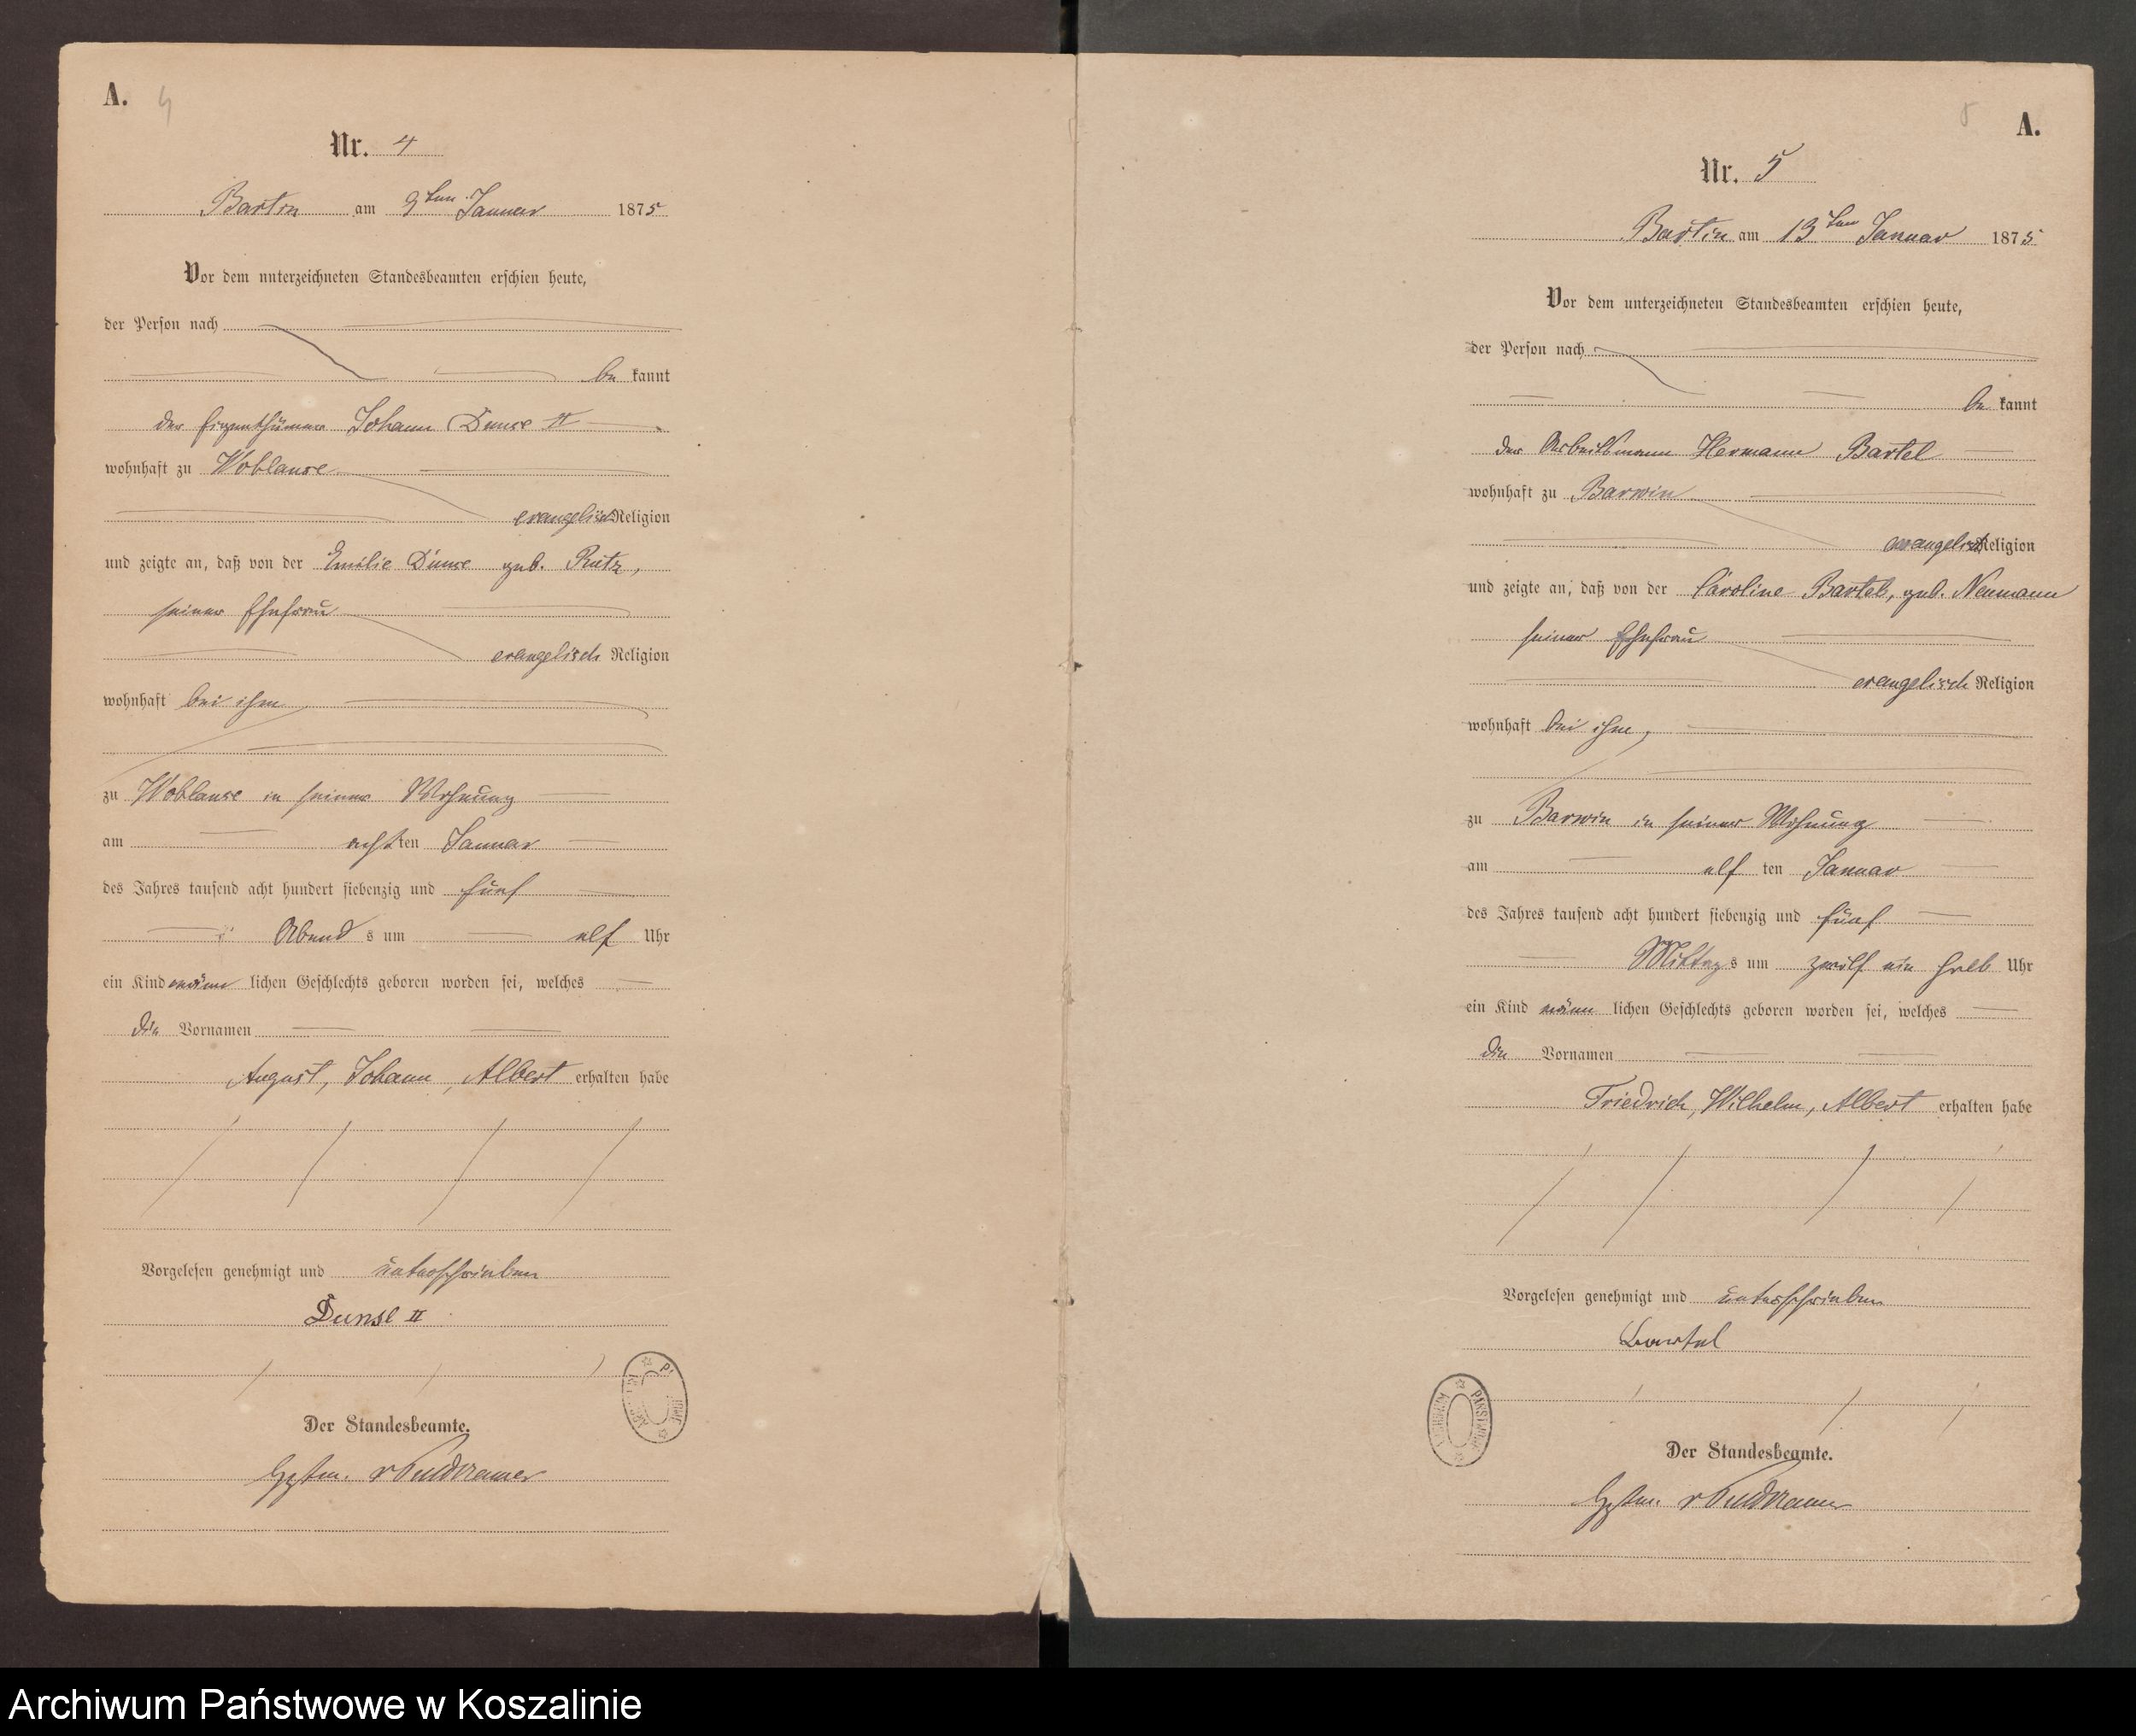 A. 4
Nr. 4
Bartin am 9ten Januar 1875
Vor dem unterzeichneten Standesbeamten erschien heute,
der Person nach
be kannt
der Eigenthümer Johann Dunse II
wohnhaft zu Woblanse
evangelisch Religion
und zeigte an, daß von der Emilie Dunse geb. Rutz,
seiner Ehefrau
evangelisch Religion
wohnhaft bei ihm
zu Woblanse in seiner Wohnung
am achtten Januar
des Jahres tausend acht hundert siebenzig und fünf
Abend s um elf Uhr
ein Kind männ lichen Geschlechts geboren worden sei, welches
die Vornamen
August, Johann, Albert erhalten habe
Vorgelesen genehmigt und unterschrieben
Dunse II
Der Standesbeamte.
Hptm. v Puttkamer
5 A.
Nr. 5
Bartin am 13ten Januar 1875
Vor dem unterzeichneten Standesbeamten erschien heute,
der Person nach
be kannt
der Arbeitsmann Hermann Bartel
wohnhaft zu Barwin
evangelisch Religion
und zeigte an, daß von der Caroline Bartel, geb. Neumann
seiner Ehefrau
evangelisch Religion
wohnhaft bei ihm,
zu Barwin in seiner Wohnung
am elf ten Januar
des Jahres tausend acht hundert siebenzig und fünf
Mittag s um zwölf ein halb Uhr
ein Kind männ lichen Geschlechts geboren worden sei, welches
die Vornamen
Friedrich, Wilhelm, Albert erhalten habe
Vorgelesen genehmigt und unterschrieben
Bartel
Der Standesbeamte.
Hptm. v Puttkamer
Archiwum Państwowe w Koszalinie